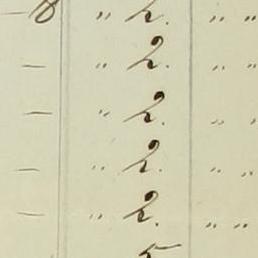 — 8 „ 2. „ „
— „ 2. „ „
— „ 2. „ „
— „ 2. „ „
— „ 2. „ „
5